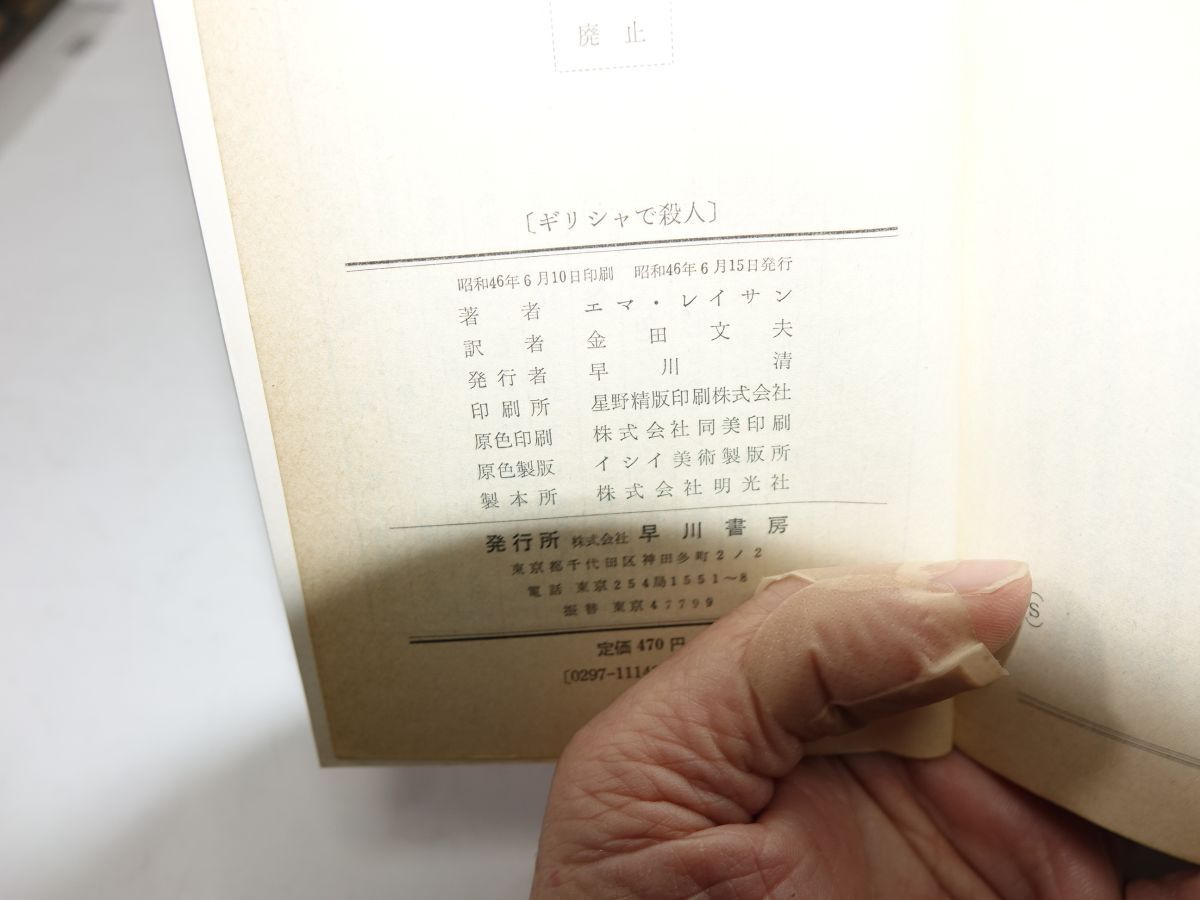 廃止
〔ギリシャで殺人〕
昭和46年6月10日印刷 昭和46年6月15日発行
著者 エマ・レイサン
訳者 金田文夫
発行者 早川清
印刷所 星野精版印刷株式会社
原色印刷 株式会社同美印刷
原色製版 イシイ美術製版所
製本所 株式会社明光社
発行所 株式会社 早川書房
東京都千代田区神田多町2ノ2
電話 東京254局1551〜8
振替 東京47799
定価470円
〔0297-1114
(S)